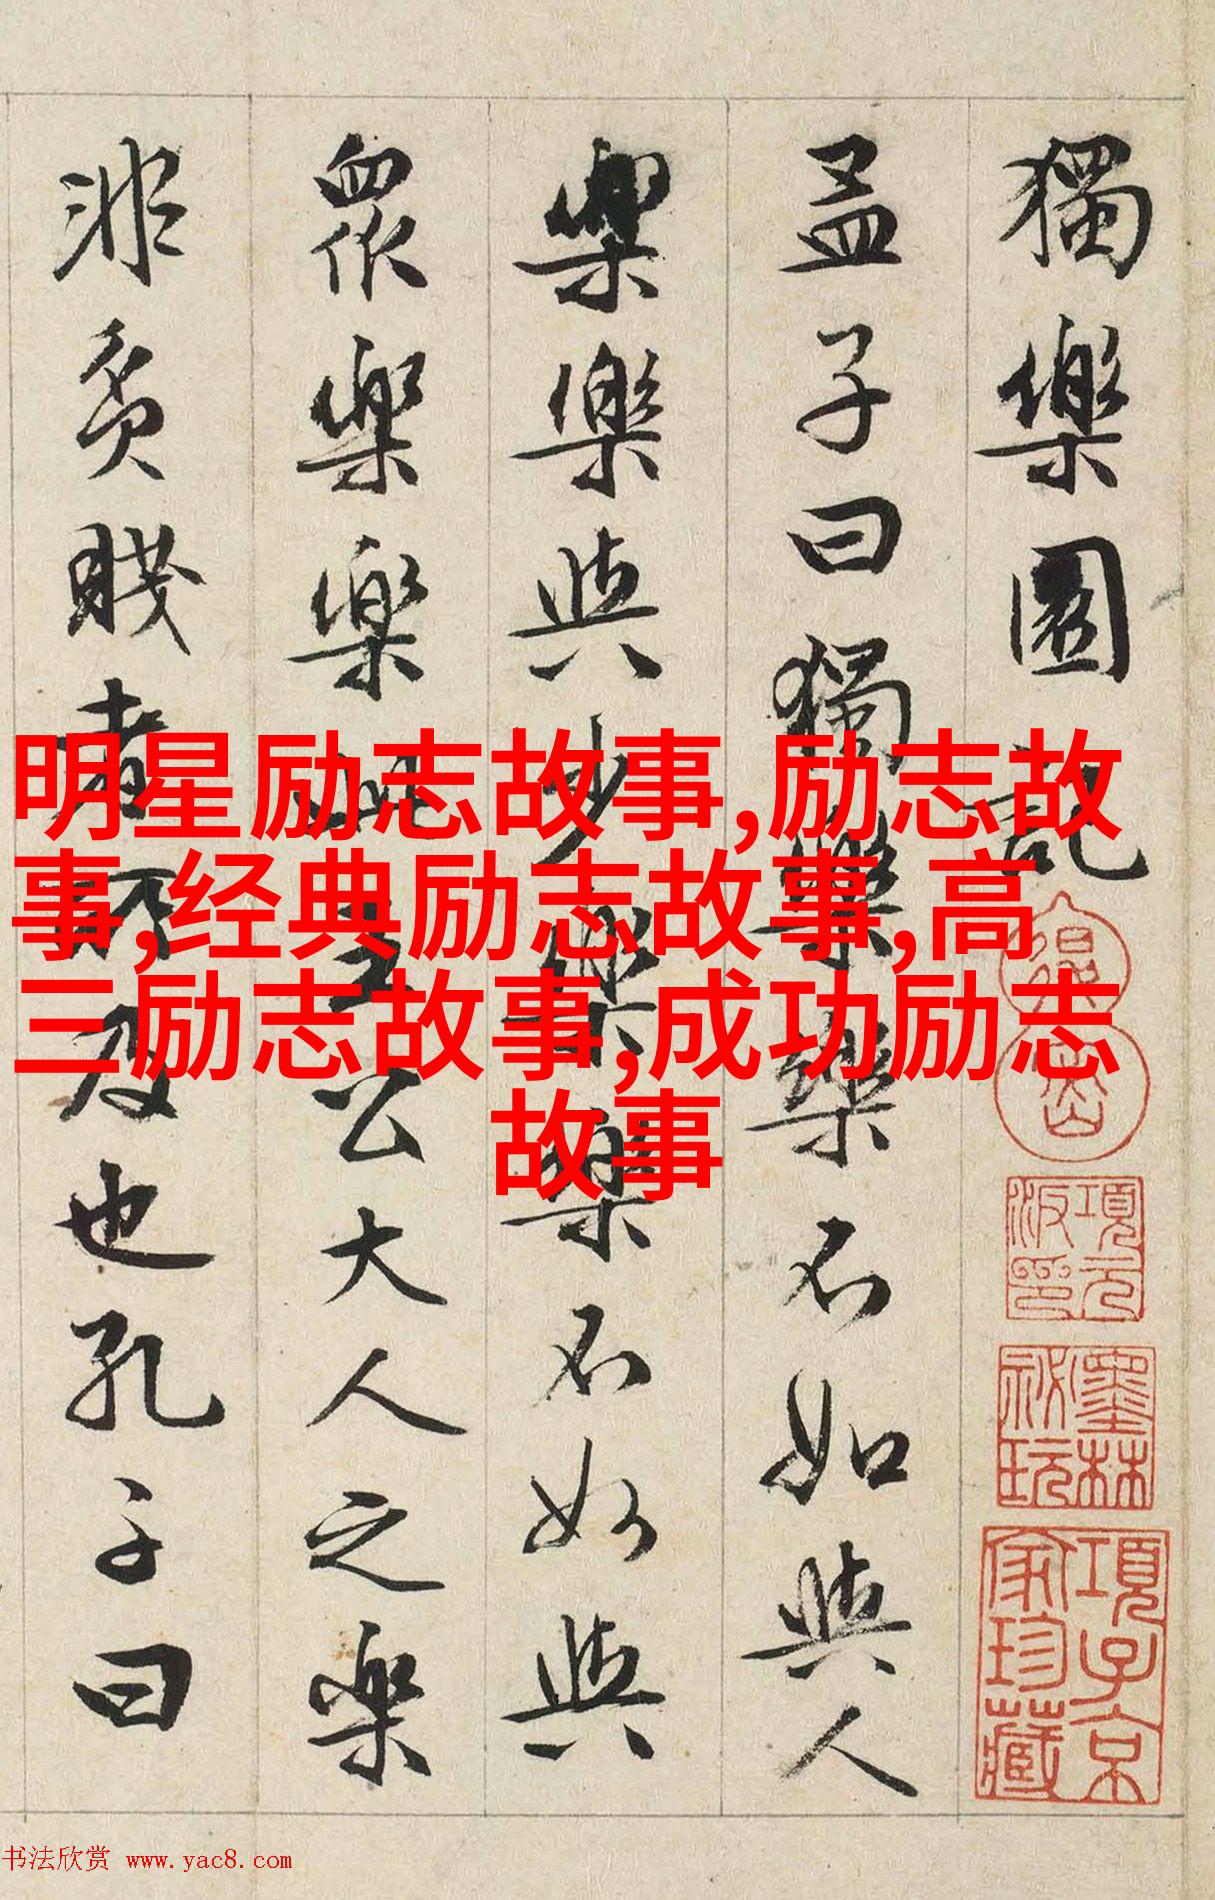 獨樂園記
孟子曰獨樂樂不如與人
樂樂與少樂樂不如與
衆樂樂此王公大人之樂
非貧賤者所及也孔子曰
明星励志故事,励志故
事,经典励志故事,高
三励志故事,成功励志
故事
項元汴印
墨林祕玩
項子京家珍藏
书法欣赏 www.yac8.com